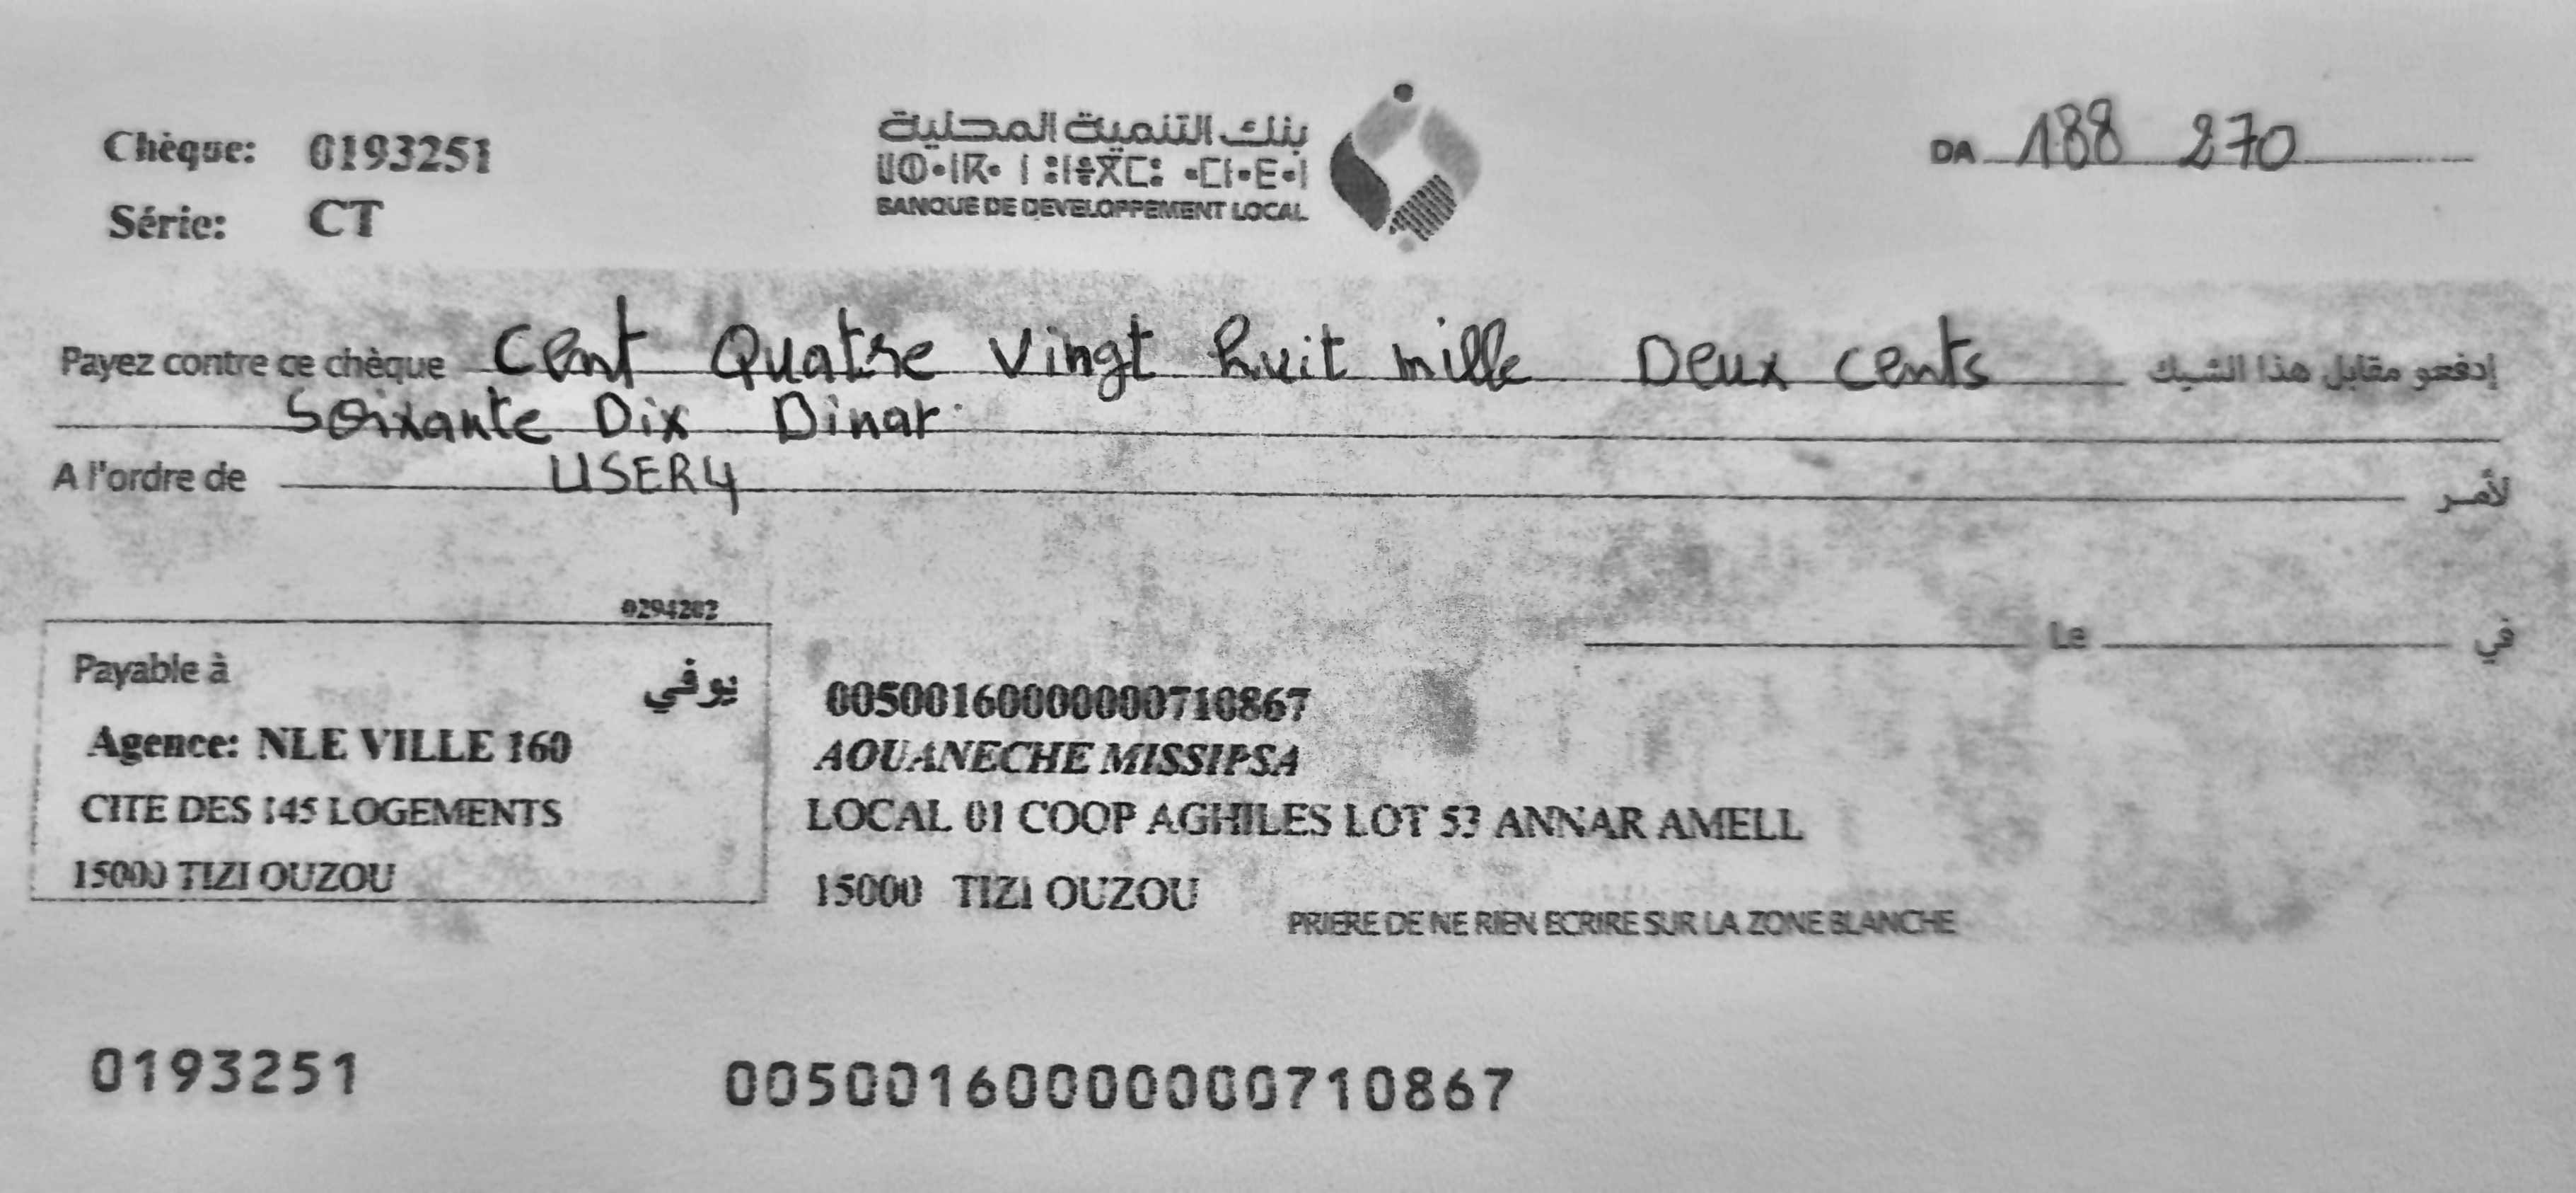 Chèque: 0193251
Série: CT
بنك التنمية المحلية
BANQUE DE DEVELOPPEMENT LOCAL
DA 188 270
Payez contre ce chèque Cent Quatre Vingt huit mille Deux cents إدفعو مقابل هذا الشيك
Soixante Dix Dinar
A l'ordre de USER4 لأمر
0294202
Le في
Payable à يوفي
Agence: NLE VILLE 160
CITE DES 145 LOGEMENTS
15000 TIZI OUZOU
00500160000000710867
AOUANECHE MISSIPSA
LOCAL 01 COOP AGHILES LOT 53 ANNAR AMELL
15000 TIZI OUZOU
PRIERE DE NE RIEN ECRIRE SUR LA ZONE BLANCHE
0193251
00500160000000710867